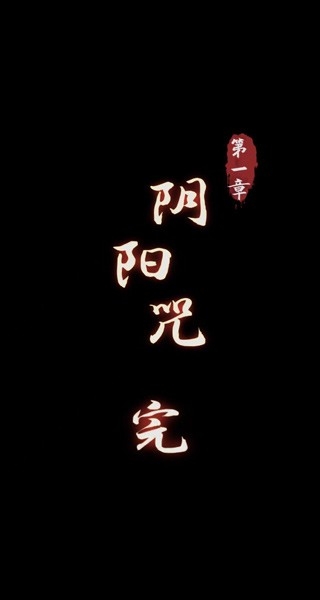 第一章
阴阳咒
完